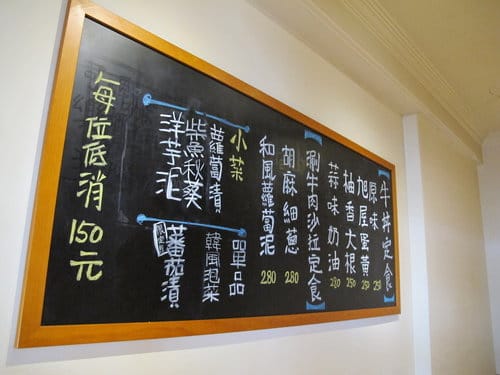 【牛丼定食】
原味 250
旭屋蛋黃 250
柚香大根 250
蒜味奶油 280
【涮牛肉沙拉定食】
胡麻細蔥 280
和風蘿蔔泥 280
小菜
蘿蔔漬
柴魚秋葵
洋芋泥
單品
韓風泡菜
蕃茄漬
每位低消 150元